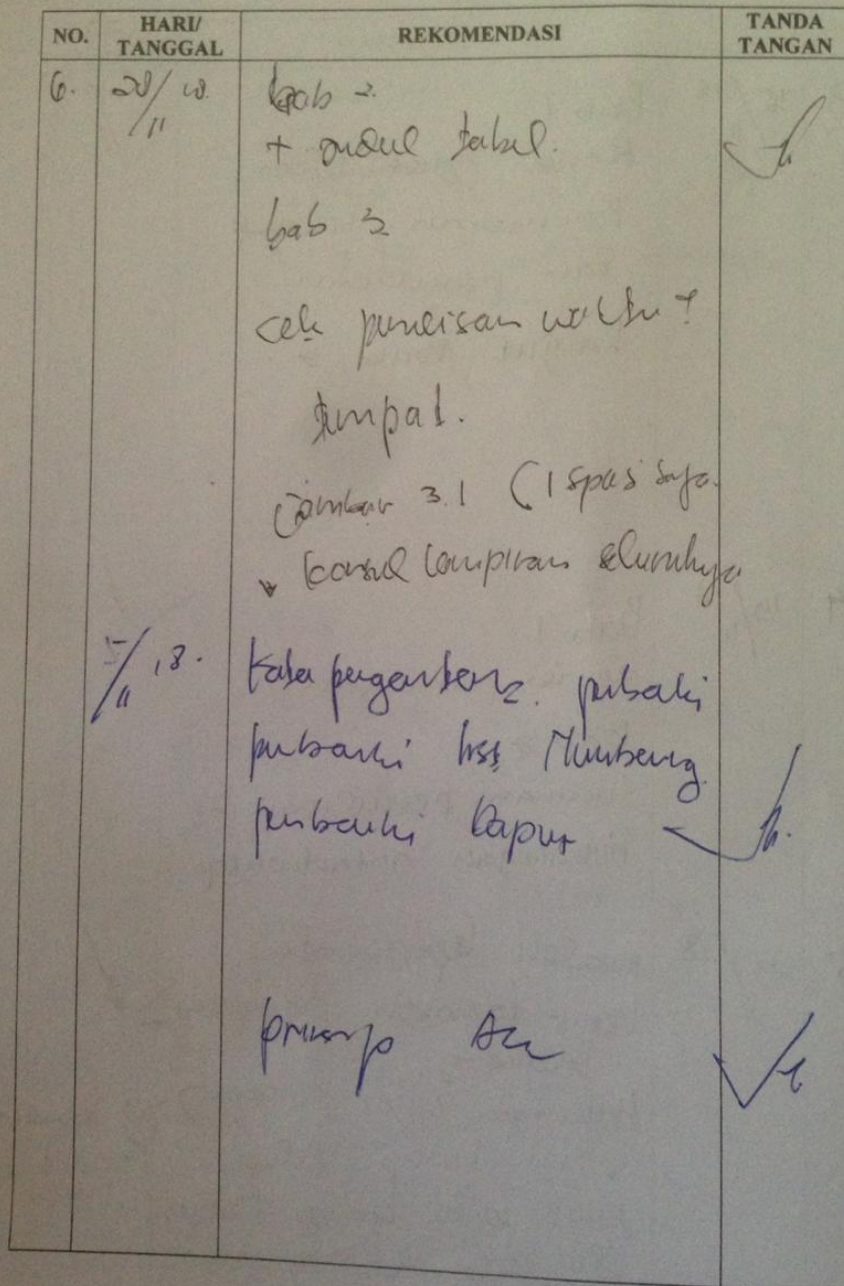 NO.
HARI/
TANGGAL
REKOMENDASI
TANDA
TANGAN
6.
bab 2.
+ judul tabel.
bab 3
cek penulisan waktu +
tempat.
Gambar 3.1 (1 spasi saja.
konsul lampiran seluruhnya
5/11 18.
Kata pengantar perbaiki
perbaiki
perbaiki Dapus
prinsip Acc